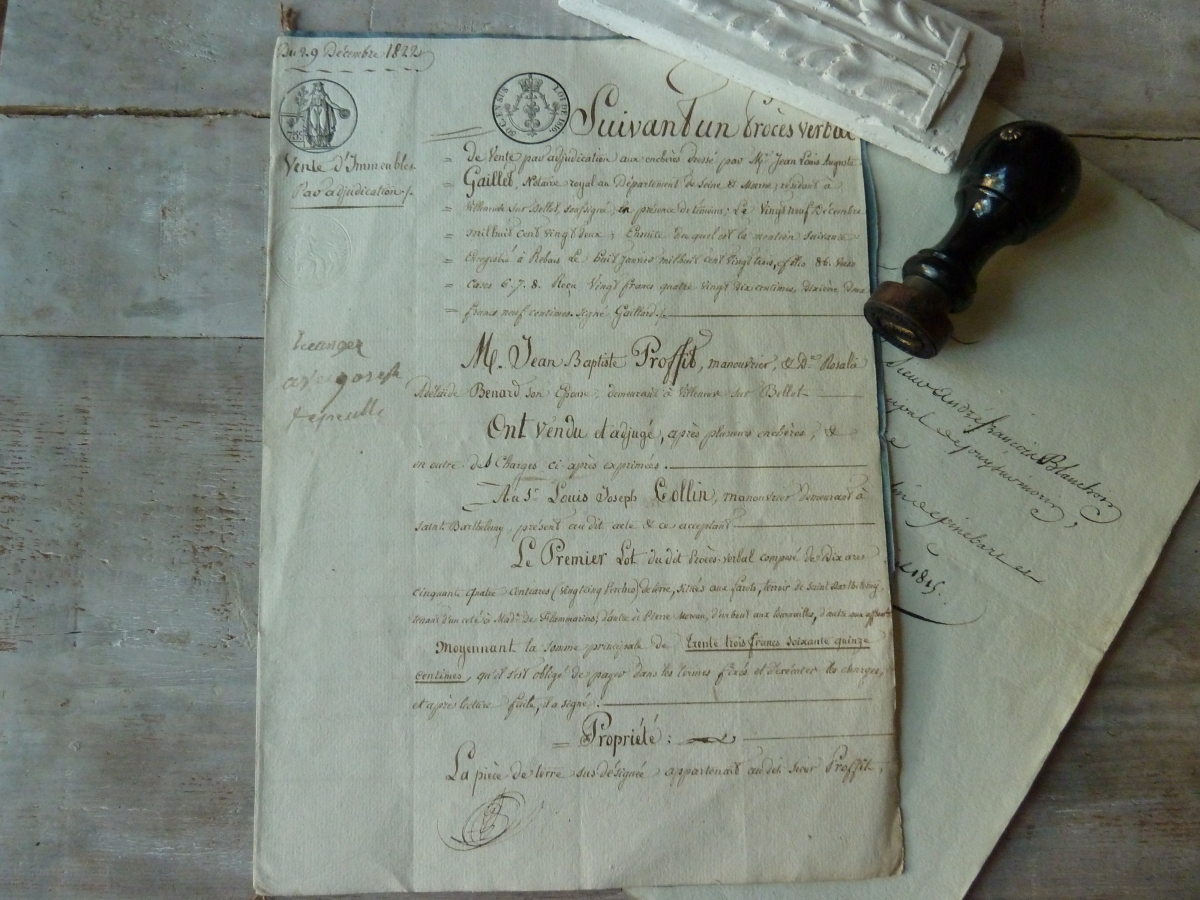 Du 29 Décembre 1822
Vente d'Immeubles
Par adjudication
50 CENT. EN SUS
LOI DE 1816.
Suivant un Procès verbal
de Vente par adjudication aux enchères dressé par Me Jean Louis Auguste
Gaillet, Notaire royal au Département de Seine et Marne, résidant à
Villeneuve sur Bellot, soussigné, en présence de témoins, Le Vingt neuf Décembre
mil huit cent vingt deux, Ensuite duquel est la mention suivante
Enregistré à Rebais Le huit Janvier mil huit cent vingt trois, folio 86. Verso
Cases 6. 7. 8. Reçu Vingt francs quatre vingt dix centimes, dixième deux
francs neuf centimes. Signé Gaillard
M. Jean Baptiste Proffit, manouvrier, & De Rosalie
Adélaïde Benard son Epouse, demeurant à Villeneuve sur Bellot
Ont vendu et adjugé, après plusieurs enchères, &
en outre des Charges ci-après exprimées.
Au Sr. Louis Joseph Collin, manouvrier demeurant à
Saint Barthélemy, présent audit acte & ce acceptant
Le Premier Lot dudit Procès-verbal composé de Dix ares
Cinquante Quatre Centiares (Vingt cinq Perches) de terre, situés aux terroir de Saint Barthélemy
tenant d'un coté à Made. de Flammarins; d'autre à Pierre d'un bout aux d'autre aux
Moyennant la somme principale de trente trois francs soixante quinze
centimes, qu'il s'est obligé de payer dans les termes fixés et d'exécuter les charges,
et après lecture faite, il a signé.
Propriété :
La pièce de terre sus-désignée appartenait audit sieur Proffit,
Sieur André françois Blanchon
1815.